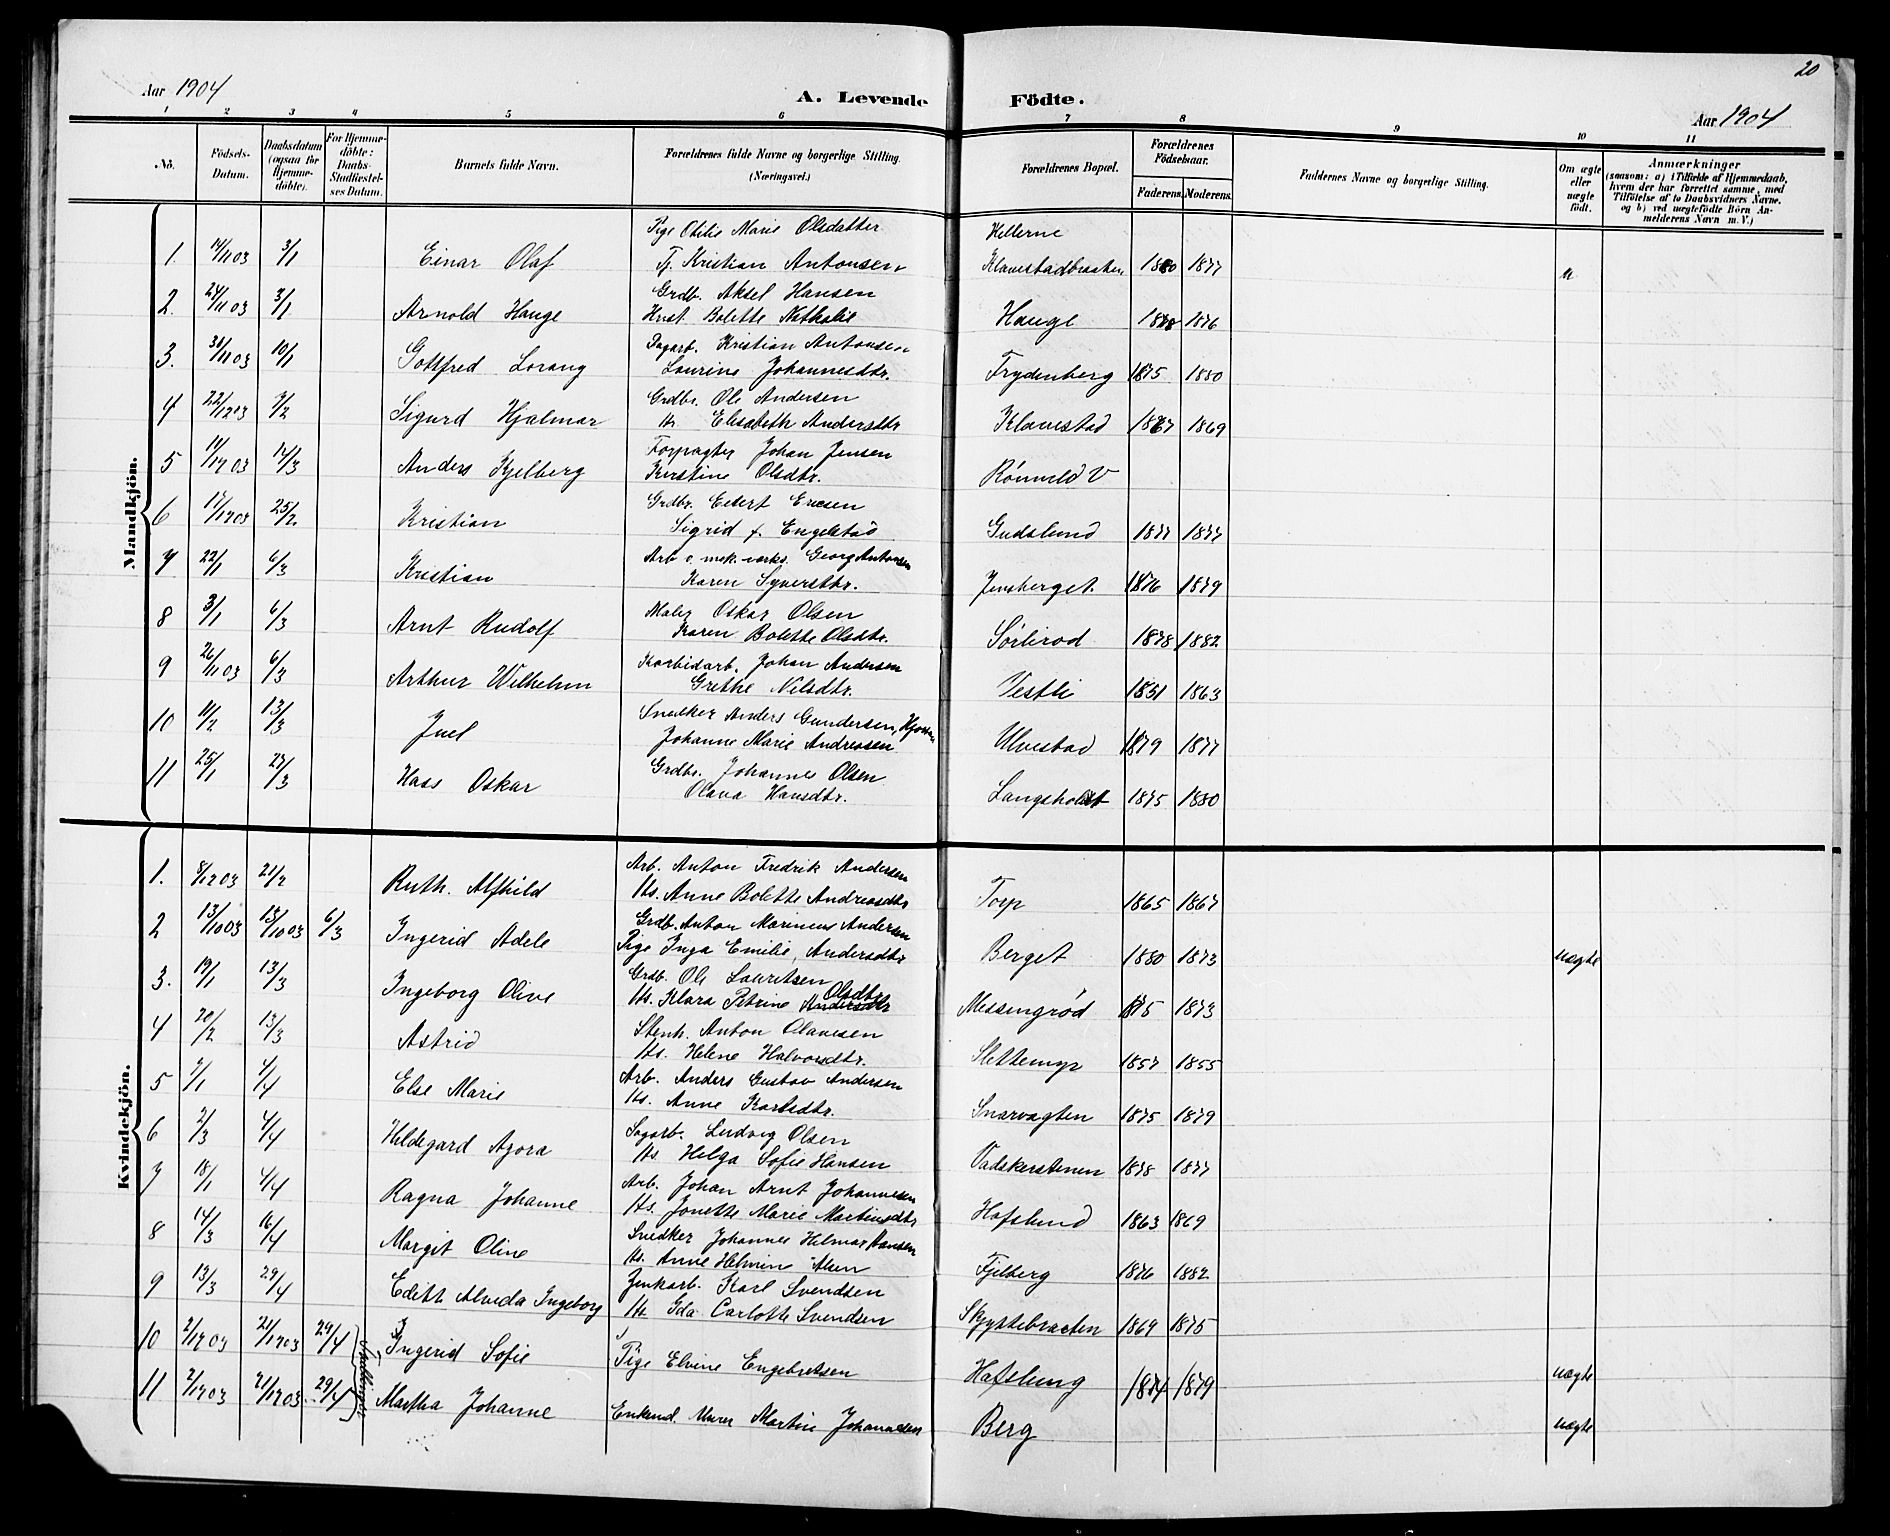 20
Aar 1904
A. Levende Födte.
Aar 1904
1 2 3 4 5 6 7 8 9 10 11
No. Födsels-Datum. Daabsdatum (ogsaa for Hjemmedöbte). For Hjemmedöbte: Daabs Stadfæstelses Datum. Barnets fulde Navn. Forældrenes fulde Navne og borgerlige Stilling. (Næringsvei.) Forældrenes Bopæl. Forældrenes Födselsaar. Faderens. Moderens. Faddernes Navne og borgerlige Stilling. Om ægte eller uægte födt. Anmærkninger (saasom: a) i Tilfælde af Hjemmedaab, hvem der har forrettet samme, med Tilföielse af to Daabsvidners Navne. og b) ved uægtefödte Börn Anmelderens Navn m. V.)
Mandkjön.
Pige Otilie Marie Olsdatter Hellerne
1 14/11 03 3/1 Einar Olaf Tj. Kristian Antonsen Klavestadbraaten 1880 1877 u
2. 24/11 03 3/1 Arnold Hauge Grdb. Aksel Hansen
Hust. Bolette Nathalie Hauge 1878 1876
3. 30/11 03 10/1 Gottfred Lorang Dagarb. Kristian Antonsen
Laurine Johannesdtr. Frydenberg 1875 1880
4 22/12 03 7/2 Sigurd Hjalmar Grdbr. Ole Andersen
Hs Elisabeth Andersdtr Klavestad 1867 1869
5 11/12 03 14/3 Anders Kjelberg Forpagter Johan Jensen
Kirstine Olsdtr. Rönneld V
6 17/12 03 25/2 Kristian Grdbr. Edert Ericsen
Sigrid f. Engelstad Gudslund 1877 1877
7 22/1 6/3 Kristian Arb v. mek. verks. Georg Antonsen
Karen Syversdtr. Jensberget 1876 1879
8 3/1 6/3 Arnt Rudolf Maler Oskar Olsen
Karen Bolette Olsdtr. Sörlirod 1878 1882
9 26/11 03 6/3 Arthur Wilhelm Karbidarb. Johan Andersen
Grethe Nilsdtr. Vestli 1851 1863
10 11/2 13/3 Juel Snedker Anders Gundersen,
Johanne Marie Andreasen Ulvestad 1879 1877
11 25/1 27/3 Hass Oskar Grdbr. Johannes Olsen
Olava Hansdtr. Langsholdt 1875 1880
Kvindekjön.
1. 8/12 03 21/2 Ruth. Alfhild Arb. Anton Fredrik Andersen
Hs. Anne Bolette Andreasdtr Torp 1865 1867
2 13/10 03 13/10 03 6/3 Ingerid Adele Grdb. Anton Marinius Andersen
Pige Inga Emilie, Andersdtr Berget 1880 1873 uægte
3. 19/1 13/3 Ingeborg Olive Grdb. Ole Lauritsen
Hs. Klara Petrine Olsdtr Messengröd 1875 1873
4 20/2 13/3 Astrid Stenh. Anton Olavesen
Hs. Helene Halvorsdtr. Slettemyr 1857 1855
5 7/1 4/4 Else Marie Arb. Anders Gustav Andersen
Hs. Anne Karlsdtr. Snarvagten 1875 1879
6 2/3 4/4 Hildegard Agora Sagarb. Ludvig Olsen
Hs. Helga Sofie Hansen Vadskerstenen 1878 1877
7 18/1 4/4 Ragna Johanne Arb. Johan Arnt Johannesen
Hs. Jonette Marie Martinsdtr Hafslund 1863 1869
8 14/3 16/4 Margit Oline Snedker Johannes Hilmar Hansen
Hs. Anne Helmine Fjelberg 1876 1882
9 13/3 29/4 Edith Alvida Ingeborg Zinkarb. Karl Svendsen
Hs Ida Carlotte Svendsen Skyttebraaten 1869 1875
10 2/12 03 21/12 03 29/4 Tvillinger Ingerid Sofie Pige Elvine Engebretsen Hafslund 1874 1879 uægte
11 2/12 03 21/12 03 29/4 Martha Johanne Enkemd. Murer Martin Johannesen Berg uægte